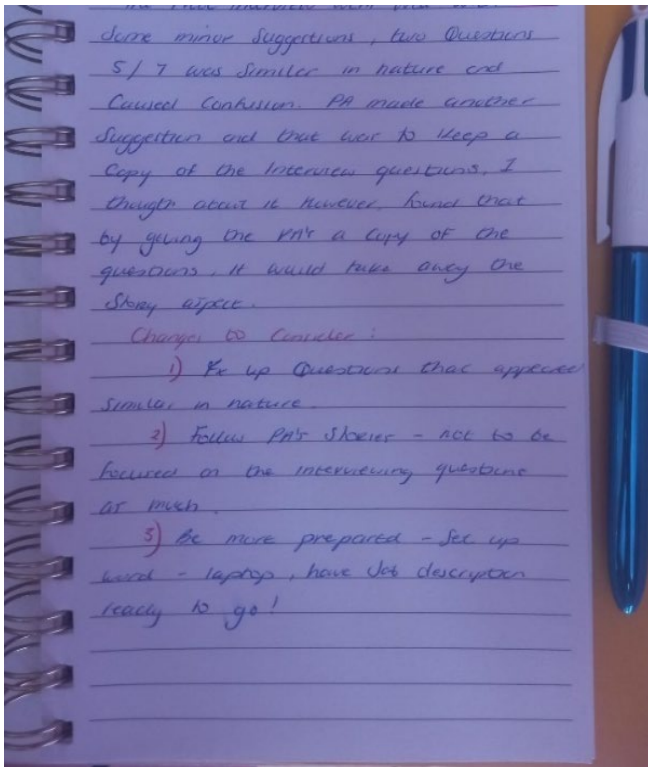 Some minor Suggestions, two Questions
5/7 was Similar in nature and
Caused Confusion. PA made another
Suggestion and that was to keep a
Copy of the Interview questions, I
thought about it However, found that
by giving the PA's a Copy of the
questions, it would take away the
Story aspect.
Changes to Consider:
1) Fix up Questions that appeared
Similar in nature.
2) Follow PA's Stories - not to be
focused on the interviewing questions
as much.
3) Be more prepared - Set up
word - laptop, have Job description
ready to go!